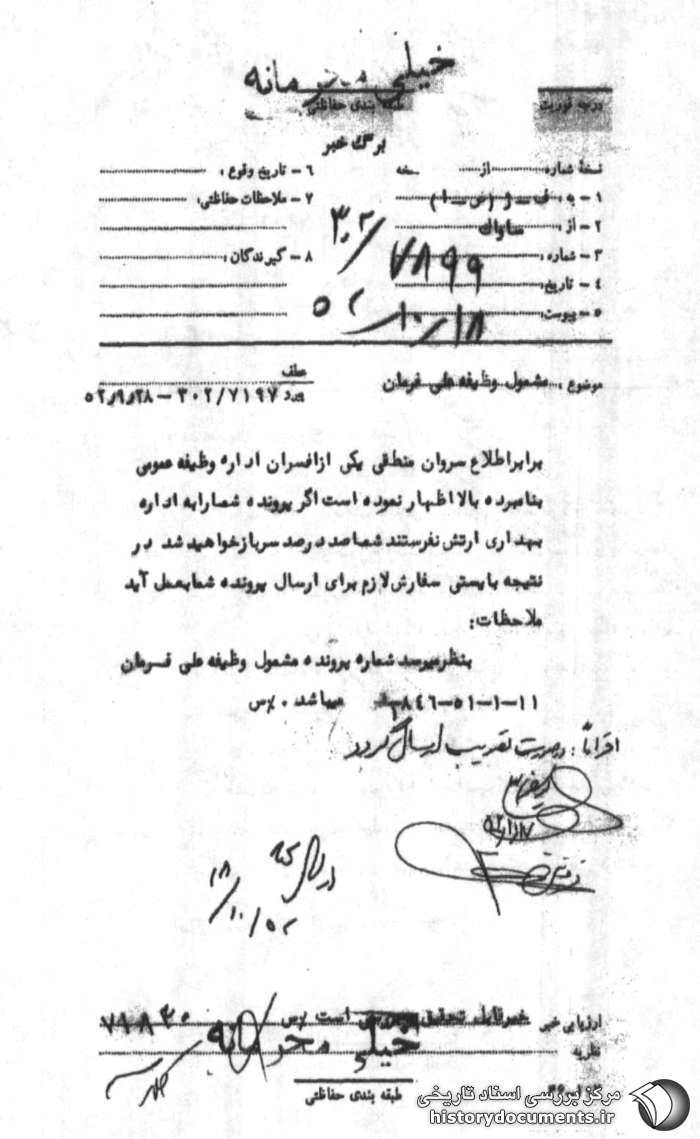 خیلی محرمانه
طبقه بندی حفاظتی
درجه فوریت
برگ خبر
نسخهٔ شماره از نسخه
۱ - به : ف - ژ (ص - ا )
۲ - از : ساواک
۳ - شماره : ۳۰۲/۷۸۹۹
۴ - تاریخ : ۵۲/۱۰/۱۸
۵ - پیوست:
۶ - تاریخ وقوع :
۷ - ملاحظات حفاظتی:
۸ - گیرندگان :
موضوع : مشمول وظیفه علی فرمان
عطف
پیرو ۳۰۲/۷۱۹۷ - ۵۲٫۹٫۲۸
برابر اطلاع سروان منطقی یکی از افسران اداره وظیفه عمومی
بنامبرده بالا اظهار نموده است اگر پرونده شما را به اداره
بهداری ارتش نفرستند شما صد درصد سرباز خواهید شد در
نتیجه بایستی سفارش لازم برای ارسال پرونده شما بعمل آید
ملاحظات:
بنظر میرسد شماره پرونده مشمول وظیفه علی فرمان
۱۱-۱-۵۱-۸۴۶ میباشد . /س
احتراماً : در صورت تصویب ارسال گردد
۱۸/۱۰/۵۲
ارزیابی خبر خبر قابل تحقیق است /س
نظریه
خیلی محرمانه
طبقه بندی حفاظتی
مرکز بررسی اسناد تاریخی
historydocuments.ir